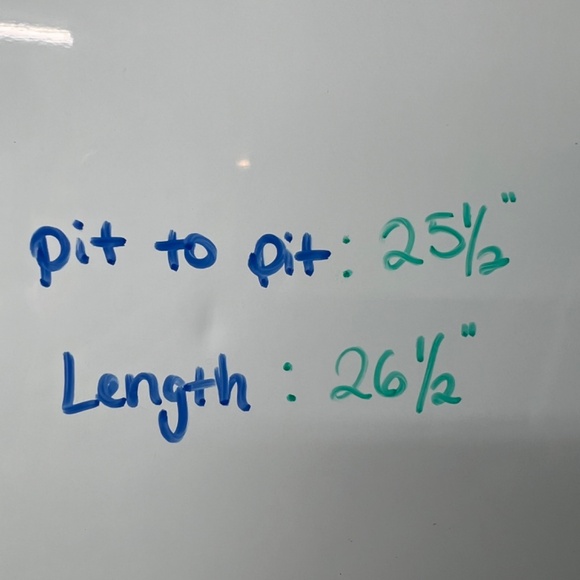 pit to pit: 25 1/2"
Length : 26 1/2"